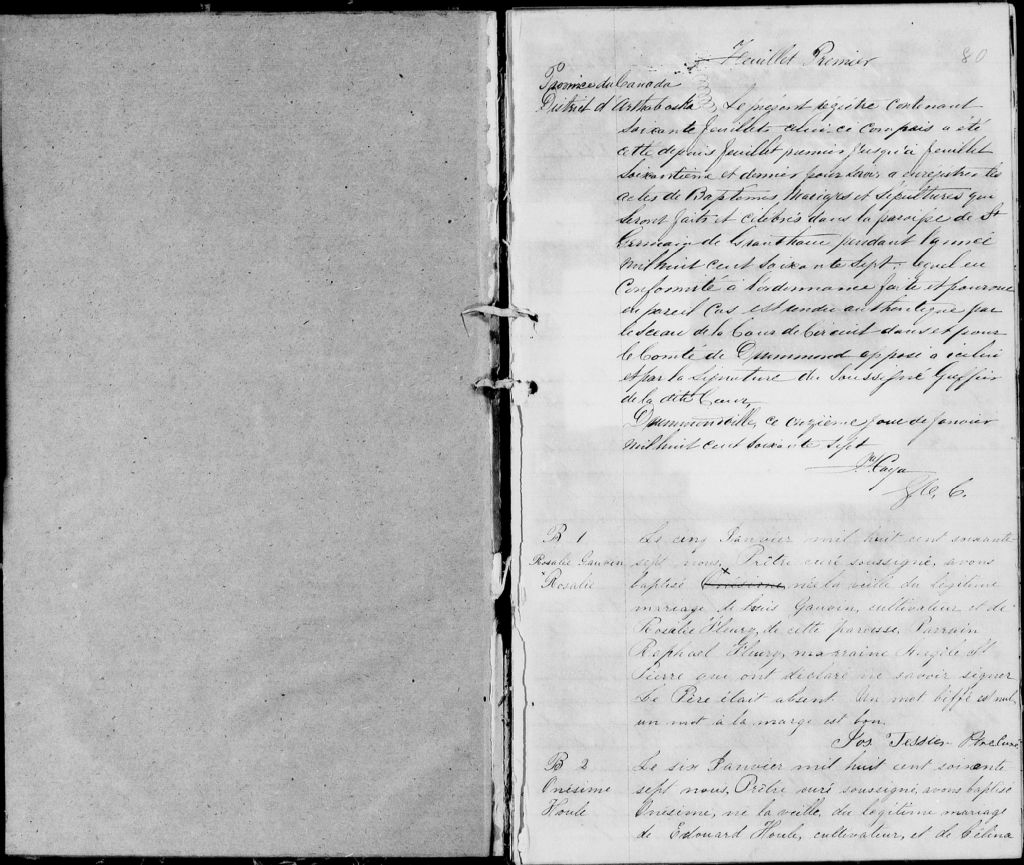 80
Feuillet Premier
Province du Canada
District d'Arthabaska
Le présent régistre contenant
soixante feuillets celui ci compris a été
cotté depuis feuillet premier jusqu'à feuillet
soixantième et dernier pour servir a enrégistrer les
actes de Baptêmes Mariages et Sépultures qui
seront faits et célébrés dans la paroisse de St
Germain de Grantham pendant l'année
mil huit cent soixante sept, lequel en
conformité à l'ordonnance faite et pourvue
en pareil cas est rendu authentique par
le sceau de la Cour de Circuit dans et pour
le Comté de Drummond apposé a icelui
et par la signature du Soussigné Greffier
de la dite Cour,
Drummondville, ce onzième jour de Janvier
mil huit cent soixante sept
Caya
C. C.
B 1
Rosalie Gauvin
Rosalie
Le cinq Janvier mil huit cent soixante
sept nous, Prêtre curé soussigné, avons
baptisé Onésime, née la veille du légitime
mariage de Louis Gauvin, cultivateur et de
Rosalie Fleury, de cette paroisse. Parrain
Raphael Fleury, marraine Angèle St
Pierre qui ont déclaré ne savoir signer
Le Père était absent. Un mot biffé est nul,
un mot à la marge est bon.
Jos Tessier Ptre Curé
B 2
Onésime
Houle
Le six Janvier mil huit cent soixante
sept nous, Prêtre curé soussigné, avons baptisé
Onésime, né la veille, du légitime mariage
de Edouard Houle, cultivateur, et de Célina